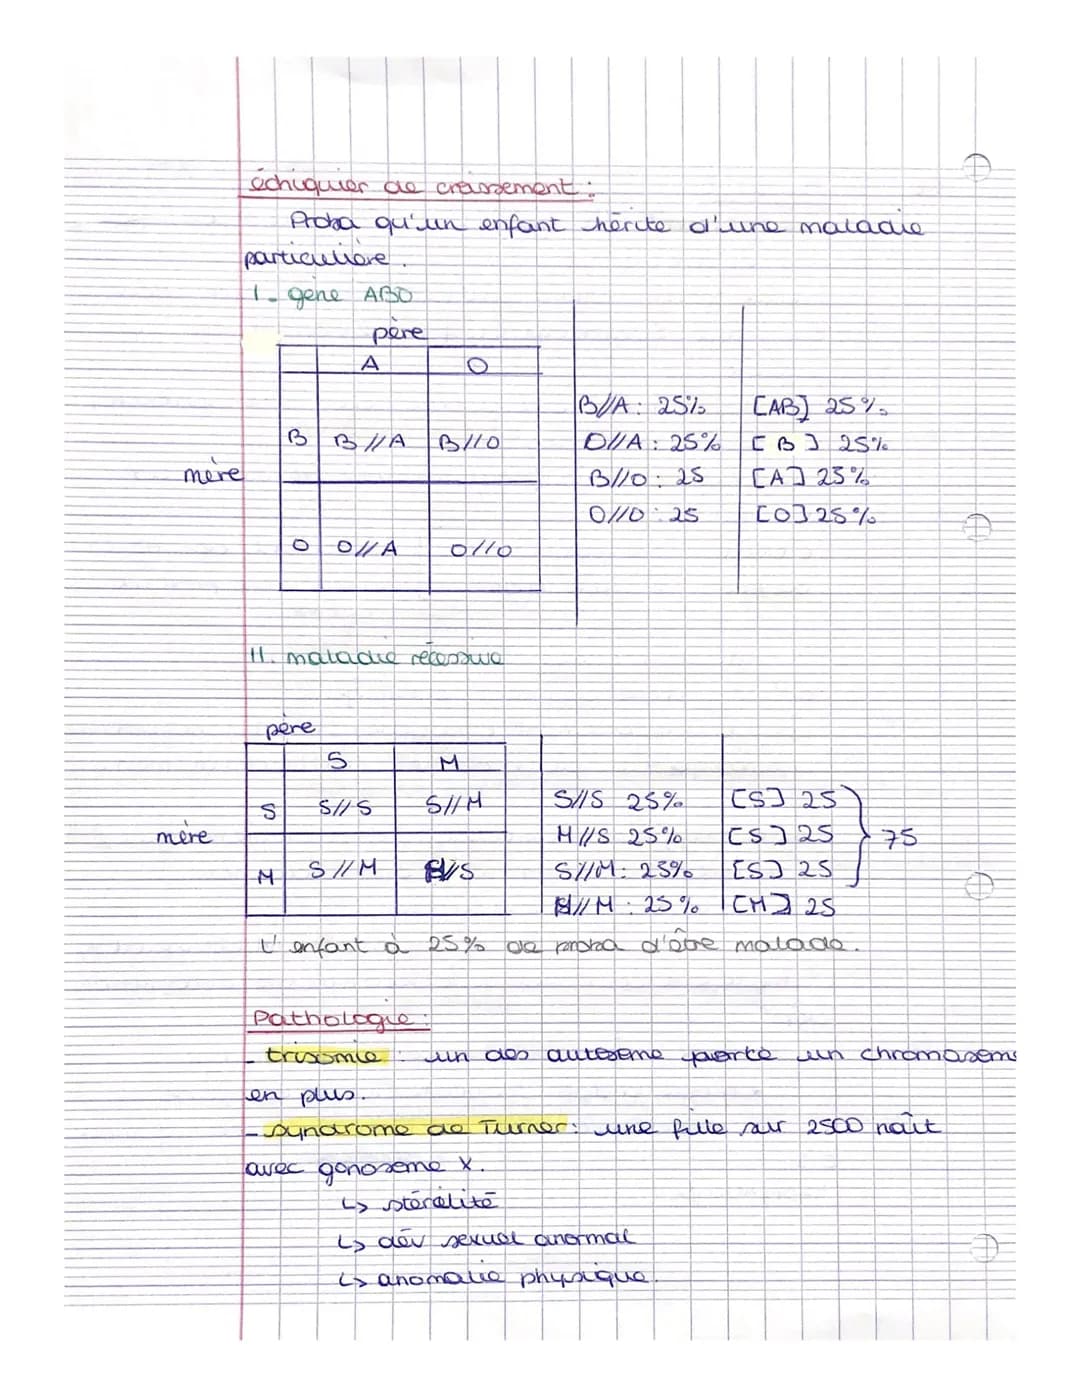 échiquier de croissement :
Proba qu'un enfant hérite d'une maladie
particulière.
I - gène ABO
père
A O
B B//A B//O
mère
O O//A O//O
B//A : 25% [AB] 25%
O//A : 25% [B] 25%
B//O : 25 [A] 25%
O//O : 25 [O] 25%
II. maladie récessive
père
S M
S S//S S//M
mère
M S//M
S//S 25% [S] 25
M//S 25% [S] 25 75
S//M : 25% [S] 25
M//M : 25% [M] 25
L'enfant à 25% de proba d'être malade.
Pathologie :
- trisomie : un des autosome porte un chromosome
en plus.
- syndrome de Turner : une fille sur 2500 naît
avec gonosome X.
↳ stérélité
↳ dév sexuel anormal
↳ anomalie physique.